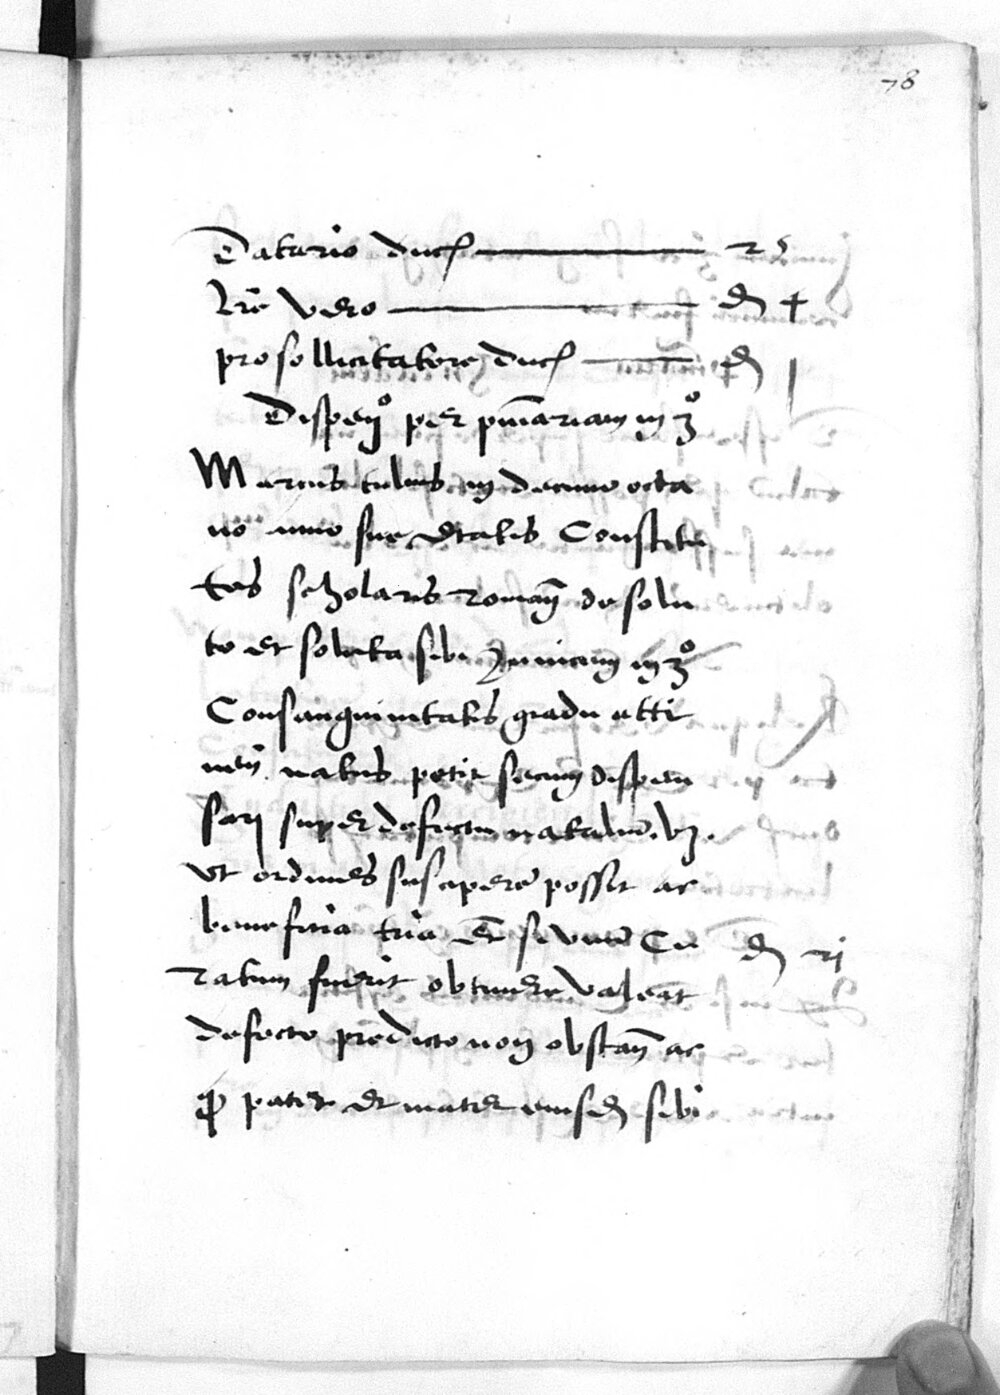 78
Datario duc͞ 25
Lr̄e vero d
pro sollicitatore duc͞ d
Dispenº per pniāriam in 3º
Marcus tulius in decimo octa
uo anno sue etatis Constitu
tus scholaris roman̄ de solu
to et soluta sibi inuicem in 3º
Consanguinitatis gradu atti
nen̄ natus petit secum dispen
sari super defectu natalium. vz.
vt ordines suscipere possit ac
beneficia tria Et si vnum Cu d xi
ratum fuerit obtinere valeat
defectu predicto non obstan̄ ac
ꝙ pater et mater eiusd sibi